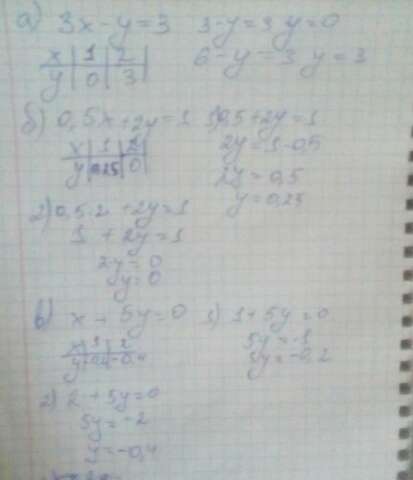 а) 3x - y = 3   3 - y = 3 y = 0
x | 1 | 2 |   6 - y = 3 y = 3
y | 0 | 3 |
б) 0,5x + 2y = 1   1) 0,5 + 2y = 1
x | 1 | 2 |   2y = 1 - 0,5
y | 0,25 | 0 |   2y = 0,5
y = 0,25
2) 0,5·2 + 2y = 1
1 + 2y = 1
2y = 0
y = 0
в) x + 5y = 0   1) 1 + 5y = 0
x | 1 | 2   5y = -1
y   -0,4   y = -0,2
2) 2 + 5y = 0
5y = -2
y = -0,4